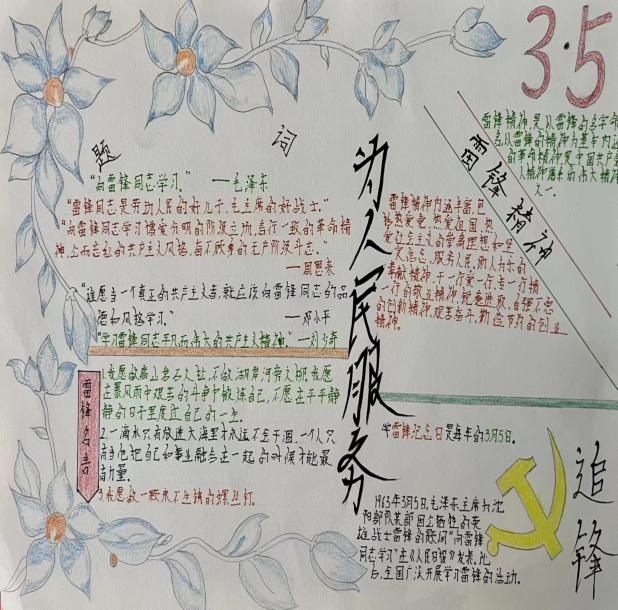 3·5
题词
"向雷锋同志学习。" ——毛泽东
"雷锋同志是劳动人民的好儿子,毛主席的好战士。"
"向雷锋同志学习憎爱分明的阶级立场,言行一致的革命精
神,公而忘私的共产主义风格,奋不顾身的无产阶级斗志。"
——周恩来
"谁愿当一个真正的共产主义者,就应该向雷锋同志的品
德和风格学习。" ——邓小平
"学习雷锋同志平凡而伟大的共产主义精神。" ——刘少奇
雷锋名言
1.我愿做高山岩石之松,不做湖岸河旁之柳。我愿
在暴风雨中艰苦的斗争中锻炼自己,不愿在平平静
静的日子里度过自己的一生。
2.一滴水只有放进大海里才永远不会干涸,一个人只
有当他把自己和事业融合在一起的时候才能最
有力量。
3.我愿做一颗永不生锈的螺丝钉。
为人民服务
雷锋精神
雷锋精神,是以雷锋的名字命
名,以雷锋的精神为基本内涵
的革命精神,是中国共产党
人精神谱系的伟大精神
之一。
雷锋精神内涵丰富,包
括热爱党、热爱祖国、热
爱社会主义的崇高理想和坚
定信念,服务人民、助人为乐的
奉献精神,干一行爱一行、专一行精
一行的敬业精神,锐意进取、自强不息
的创新精神,艰苦奋斗、勤俭节约的创业
精神。
学雷锋纪念日是每年的3月5日。
1963年3月5日,毛泽东主席为沈
阳部队某部因公牺牲的英
雄战士雷锋的题词"向雷锋
同志学习"在《人民日报》发表,此
后,全国广泛开展学习雷锋的活动。
追锋